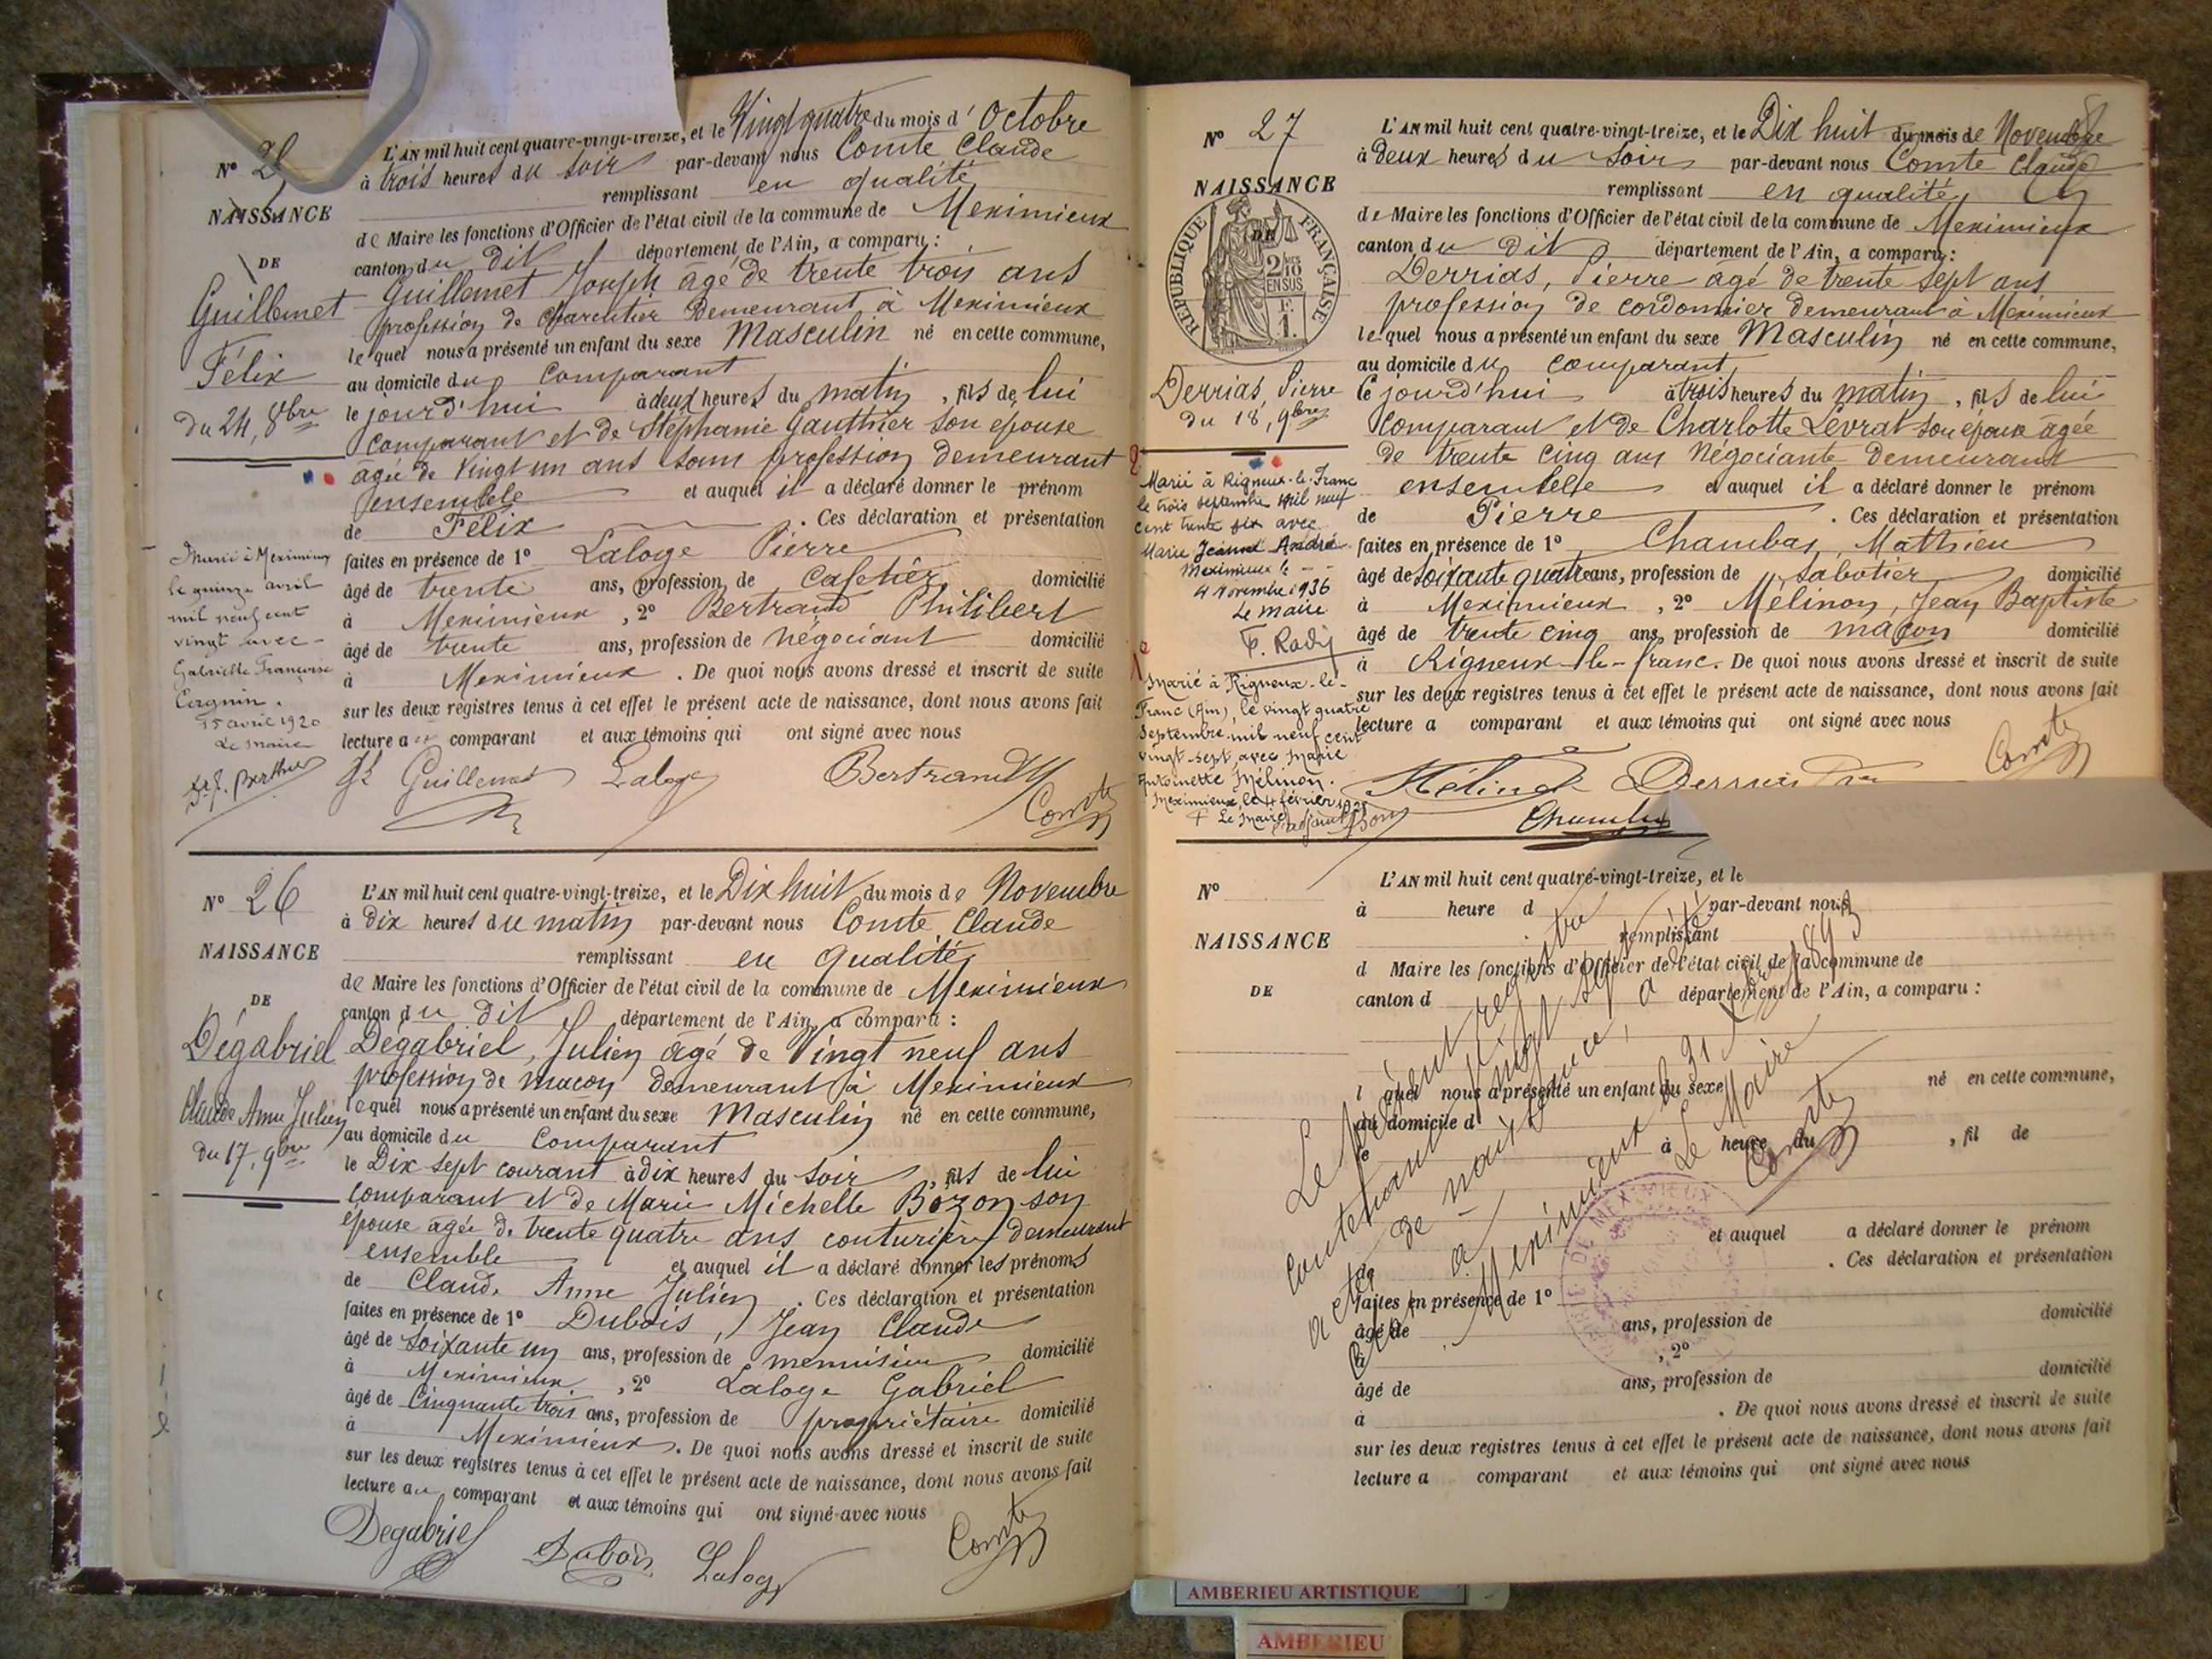 N° 25
NAISSANCE
DE
Guillemet
Félix
du 24, 8bre
L'AN mil huit cent quatre-vingt-treize, et le Vingt quatre du mois d' Octobre
à trois heures du soir par-devant nous Comte Claude
remplissant en qualité
de Maire les fonctions d'Officier de l'état civil de la commune de Meximieux
canton du dit département de l'Ain, a comparu :
Guillemet Joseph agé de trente trois ans
profession de charcutier demeurant à Meximieux
lequel nous a présenté un enfant du sexe Masculin né en cette commune,
au domicile du comparant
le jourd'hui à deux heures du matin, fils de lui
comparant et de Stéphanie Gauthier son épouse
agée de vingt un ans sans profession demeurant
ensemble et auquel il a déclaré donner le prénom
de Félix . Ces déclaration et présentation
faites en présence de 1° Laloge Pierre
âgé de trente ans, profession de cafetier domicilié
à Meximieux, 2° Bertrand Philibert
âgé de trente ans, profession de négociant domicilié
à Meximieux . De quoi nous avons dressé et inscrit de suite
sur les deux registres tenus à cet effet le présent acte de naissance, dont nous avons fait
lecture au comparant et aux témoins qui ont signé avec nous
Marié à Meximieux
le quinze avril
mil neuf cent
vingt avec
Gabrielle Françoise
15 avril 1920
Le Maire
Guillemet Laloge Bertrand
Comte
N° 26
NAISSANCE
DE
Dégabriel
Claude Anne Julien
du 17, 9bre
L'AN mil huit cent quatre-vingt-treize, et le Dix huit du mois de Novembre
à dix heures du matin par-devant nous Comte Claude
remplissant en qualité
de Maire les fonctions d'Officier de l'état civil de la commune de Meximieux
canton du dit département de l'Ain, a comparu :
Dégabriel, Julien âgé de Vingt neuf ans
profession de maçon demeurant à Meximieux
lequel nous a présenté un enfant du sexe Masculin né en cette commune,
au domicile du comparant
le Dix sept courant à dix heures du soir, fils de lui
comparant et de Marie Michelle Bozon son
épouse agée de trente quatre ans couturière demeurant
ensemble et auquel il a déclaré donner les prénoms
de Claude Anne Julien . Ces déclaration et présentation
faites en présence de 1° Dubois, Jean Claude
âgé de soixante un ans, profession de menuisier domicilié
à Meximieux, 2° Laloge Gabriel
âgé de Cinquante trois ans, profession de propriétaire domicilié
à Meximieux . De quoi nous avons dressé et inscrit de suite
sur les deux registres tenus à cet effet le présent acte de naissance, dont nous avons fait
lecture au comparant et aux témoins qui ont signé avec nous
Degabriel Dubois Laloge Comte
N° 27
NAISSANCE
DE
RÉPUBLIQUE FRANÇAISE
2/10 EN SUS
F. 1.
Derrias, Pierre
du 18, 9bre
L'AN mil huit cent quatre-vingt-treize, et le Dix huit du mois de Novembre
à deux heures du soir par-devant nous Comte Claude
remplissant en qualité
de Maire les fonctions d'Officier de l'état civil de la commune de Meximieux
canton du dit département de l'Ain, a comparu :
Derrias, Pierre agé de trente sept ans
profession de cordonnier demeurant à Meximieux
lequel nous a présenté un enfant du sexe Masculin né en cette commune,
au domicile du comparant
le jourd'hui à trois heures du matin, fils de lui
comparant et de Charlotte Levrat son épouse agée
de trente cinq ans Négociante demeurant
ensemble et auquel il a déclaré donner le prénom
de Pierre . Ces déclaration et présentation
faites en présence de 1° Chambas, Mathieu
âgé de soixante quatre ans, profession de sabotier domicilié
à Meximieux, 2° Mélinon, Jean Baptiste
âgé de trente cinq ans, profession de maçon domicilié
à Rigneux-le-franc. De quoi nous avons dressé et inscrit de suite
sur les deux registres tenus à cet effet le présent acte de naissance, dont nous avons fait
lecture a comparant et aux témoins qui ont signé avec nous
2°
Marié à Rigneux-le-Franc
le trois septembre mil neuf
cent trente six avec
Marie Jeanne André
Meximieux le
4 Novembre 1936
Le maire
1°
Marié à Rigneux-le-
Franc (Ain), le vingt quatre
Septembre mil neuf cent
vingt-sept, avec Marie
Antoinette Mélinon.
Meximieux, le 4 février
Le Maire
Comte
N°
NAISSANCE
DE
L'AN mil huit cent quatre-vingt-treize, et le
à heure d par-devant nous
remplissant
d Maire les fonctions d'Officier de l'état civil de la commune de
canton d département de l'Ain, a comparu :
l quel nous a présenté un enfant du sexe né en cette commune,
au domicile d
le à heure du , fil de
et auquel a déclaré donner le prénom
de . Ces déclaration et présentation
faites en présence de 1°
âgé de ans, profession de domicilié
à , 2°
âgé de ans, profession de domicilié
à . De quoi nous avons dressé et inscrit de suite
sur les deux registres tenus à cet effet le présent acte de naissance, dont nous avons fait
lecture a comparant et aux témoins qui ont signé avec nous
Le présent registre
contenant vingt sept
actes de naissance, a été
clos
à Meximieux le 31 Xbre 1893
Le Maire
Comte
MEXIMIEUX
AMBERIEU ARTISTIQUE
AMBERIEU